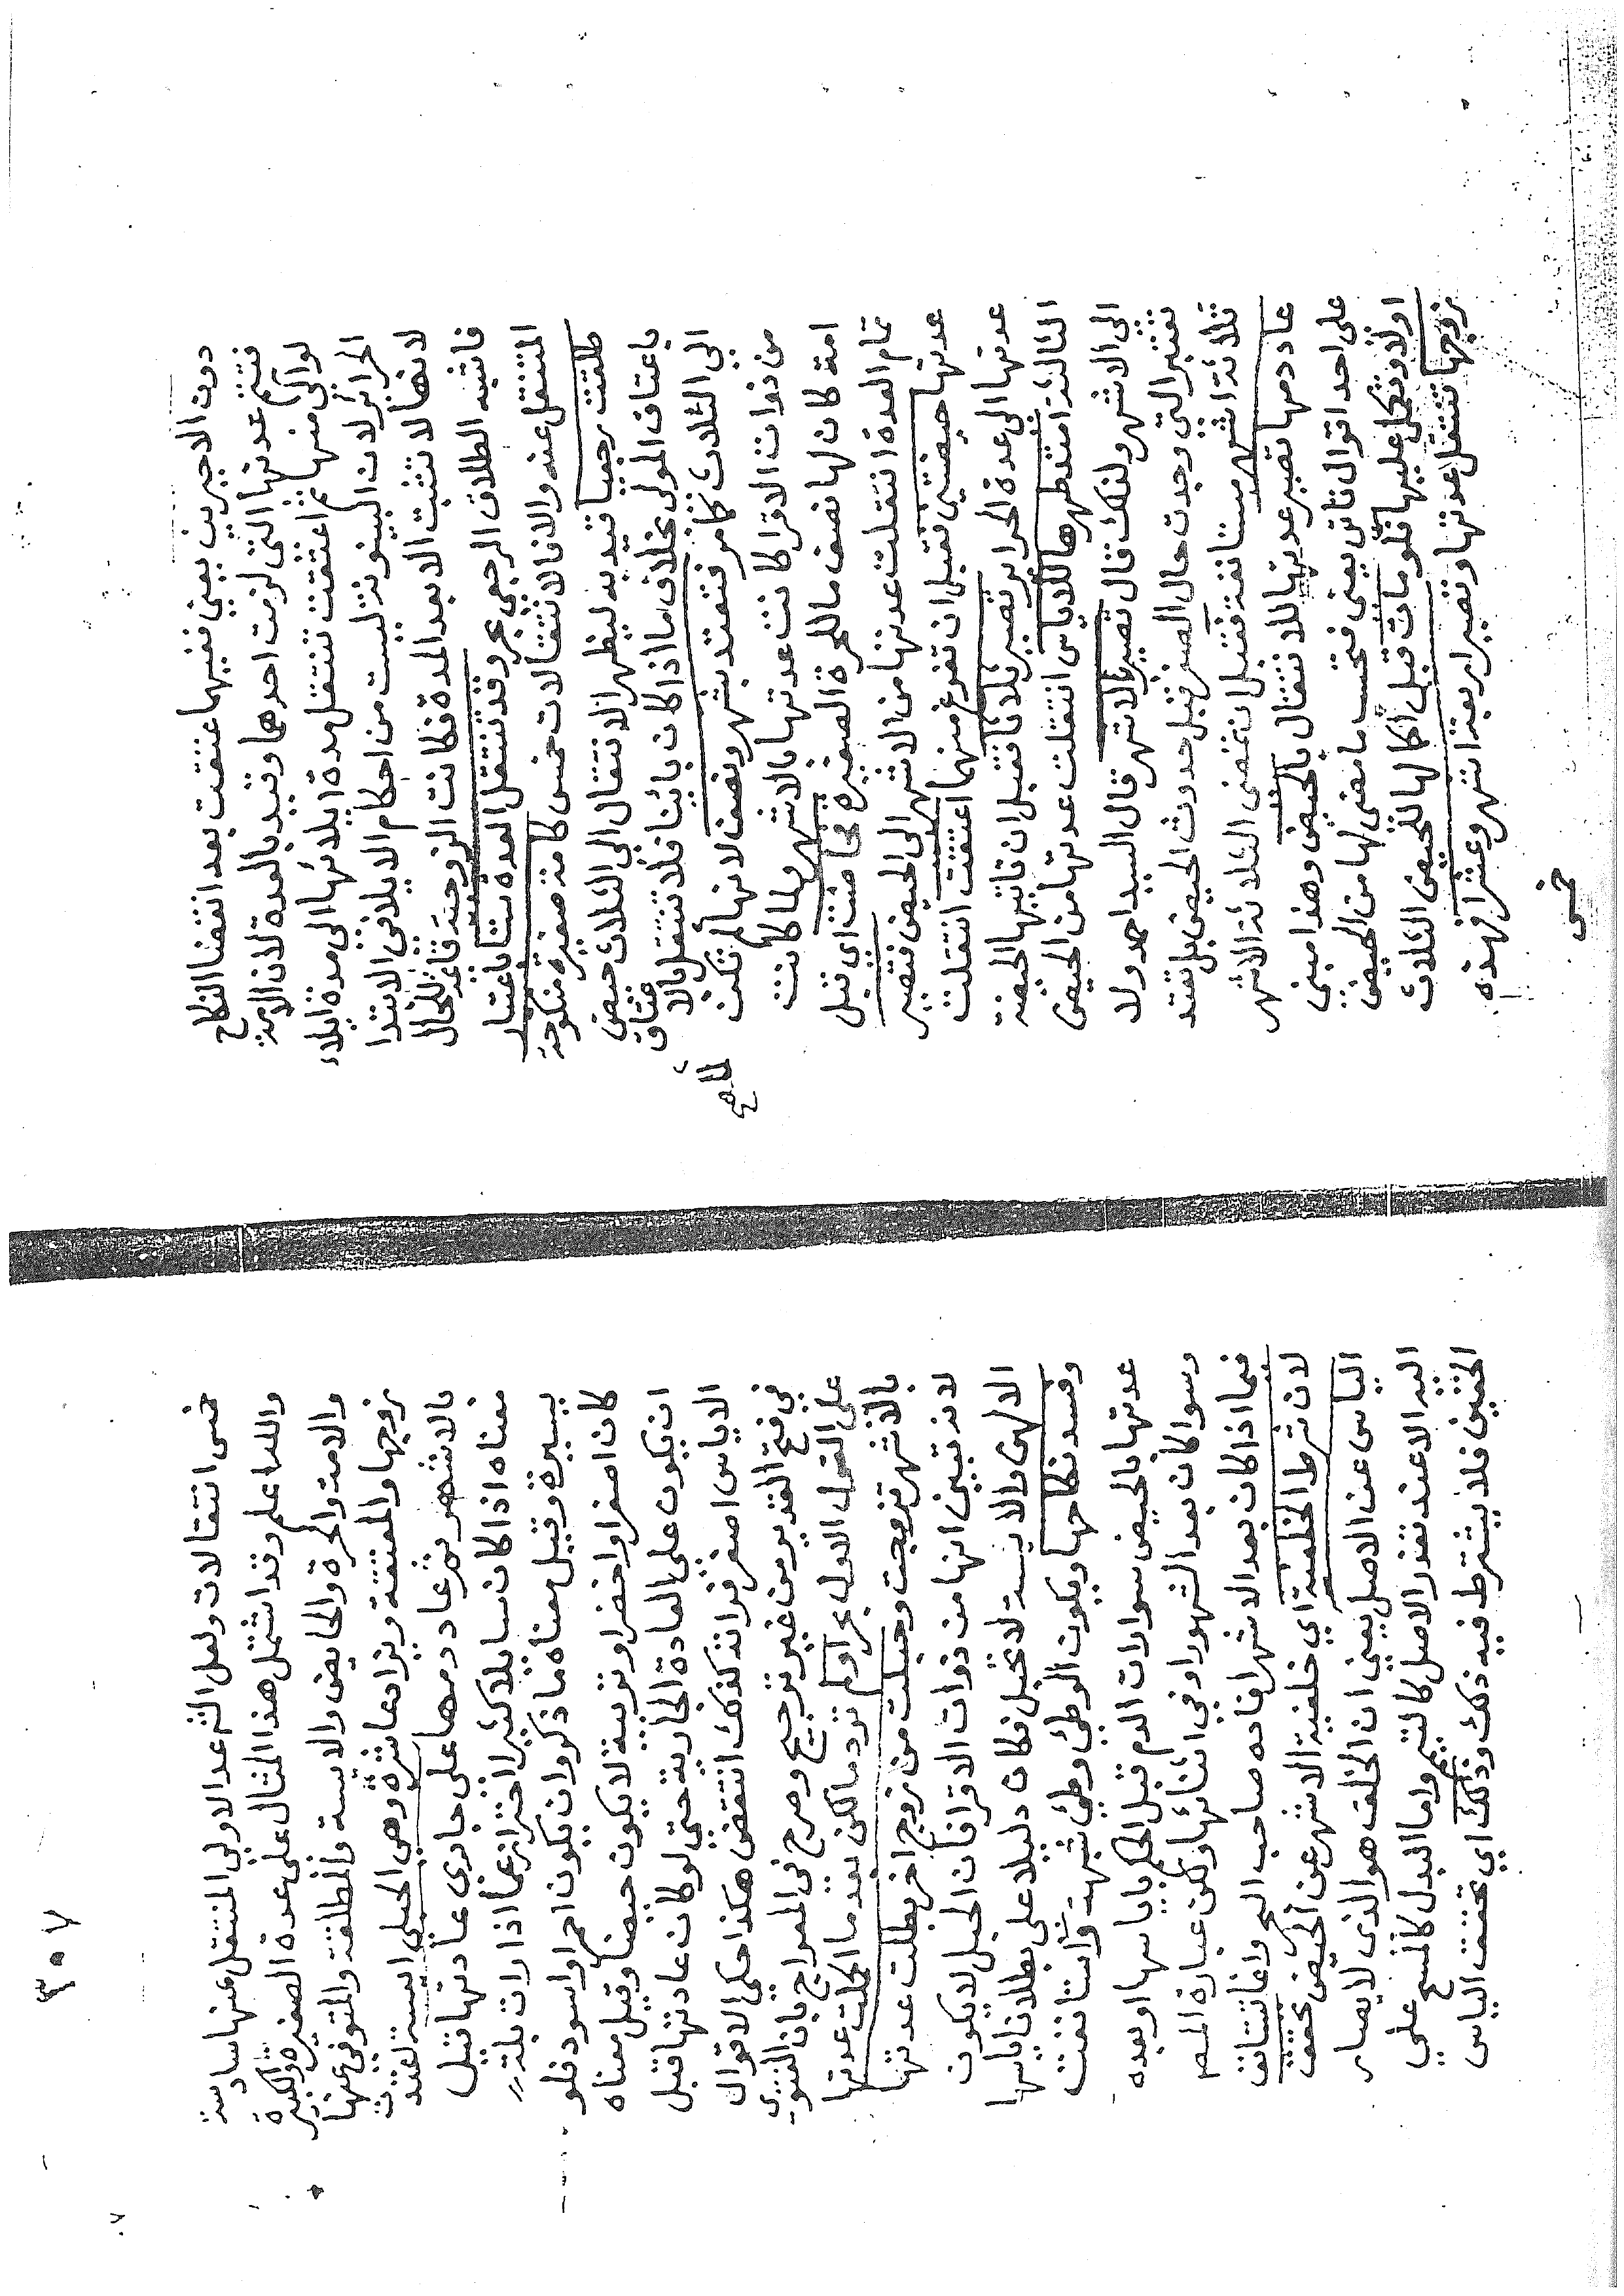 دون الاخيرين يعني ففيهما عتقت بعد انقضا النكاح
فتتم عدتها التي لزمت احدهما وقيد بالعدة لان الامة
لو آلي منها ثم اعتقت تنتقل مدة ايلائها الى مدة ايلاء
الحرائر لان البينونة ليست من احكام الايلا في الابتدا
لانها لا تثبت الا بعد المدة فكانت الزوجة قائمة للحال
فاشبه الطلاق الرجعي بحر وقد تنتقل العدة ستا باعتبار
المنتقل عنه والا فالانتقالات خمس كامة صغيرة منكوحة
طلقت رجعيا قيد به ليظهر الانتقال الى الثلاث حيض
باعتاق المولى بخلاف ما اذا كان بائنا فلا تنتقل بالاعتاق
الى الثلاث كما مر فتعتد بشهر ونصف لانها لم تكن
من ذوات الاقرا كانت عدتها بالاشهر ولما كانت
امة كان لها نصف ما للحرة الصغيرة فحاضت اي قبل
تمام العدة انتقلت عدتها من الاشهر الى الحيض فتصير
عدتها حيضتين فقبل ان تفرغ منهما اعتقت انتقلت
عدتها الى عدة الحرائر تصير ثلاثا فقبل ان تاتيها الحيضة
الثالثة امتد طهرها للاياس انتقلت عدتها من الحيض
الى الاشهر ولذلك قال تصير بالاشهر قال السيد احمد ولا
تعتبر التي وجدت حال الصغر قبل حدوث الحيض بل تعتد
ثلاثة اشهر مستانفة فقبل ان تمضي الثلاثة الاشهر
عاد دمها تصير عدتها للانتقال بالحيض وهذا مبني
على احد اقوال تاتي يعني فتحسب ما مضى لها من الحيض
اولا وتكمل عليها فلو مات قبل اكمالها للحيض الثلاث
زوجها تنتقل عدتها وتصير اربعة اشهر وعشرا فهذه
خمس
٣٥٧
خمس انتقالات ولعل الشر عد الاولى المنتقل عنها سادسة
والله اعلم وقد اشتمل هذا المثال على عدة الصغيرة والكبيرة
والامة والحرة والحايض والايسة والمطلقة والمتوفى عنها
زوجها والمعتقة ويزاد عاشرة وهي الحبلى ايسة اعتدت
بالاشهر ثم عاد دمها على جاري عادتها قيل
معناه اذا كان سايلا كثيرا احترازا عما اذا رات بلة
يسيرة وقيل معناه ما ذكر وان يكون احمر او اسود فلو
كان اصفر او اخضر او تربية لا يكون حيضا وقيل معناه
ان يكون على العادة الجارية حتى لو كان عادتها قبل
الاياس اصفر فراته كذلك انتقض هكذا حكى الاقوال
في فتح القدير من غير ترجيح وصرح في المعراج بان الفتوى
على القول الاول بحر او لم تزد ما لكن بعد ما اكملت عدتها
بالاشهر تزوجت وحبلت من زوج اخر بطلت عدتها
لانه تبين انها من ذوات الاقرا فان الحبل لا يكون
الا لهن والايسة لا تحبل فكان دليلا على بطلان اياسها
وفسد نكاحها ويكون الوطئ وطئ شبهة واستانفت
عدتها بالحيض سوا رات الدم قبل الحكم باياسها او بعده
وسوا كان بعد الشهور او في اثنائها ولكن عبارة المصـ
فيما اذا كان بعد الاشهر افاده صاحب البحر وانما تستانف
لان شرط الخلفية اي خلفية الاشهر عن الحيض تحقق
الياس عن الاصل يعني ان الخلف هو الذي لا يصار
اليه الا عند تعذر الاصل كالتيمم واما البدل كالمسح على
الخفين فلا يشترط فيه ذلك وذلك اي تحقق الياس